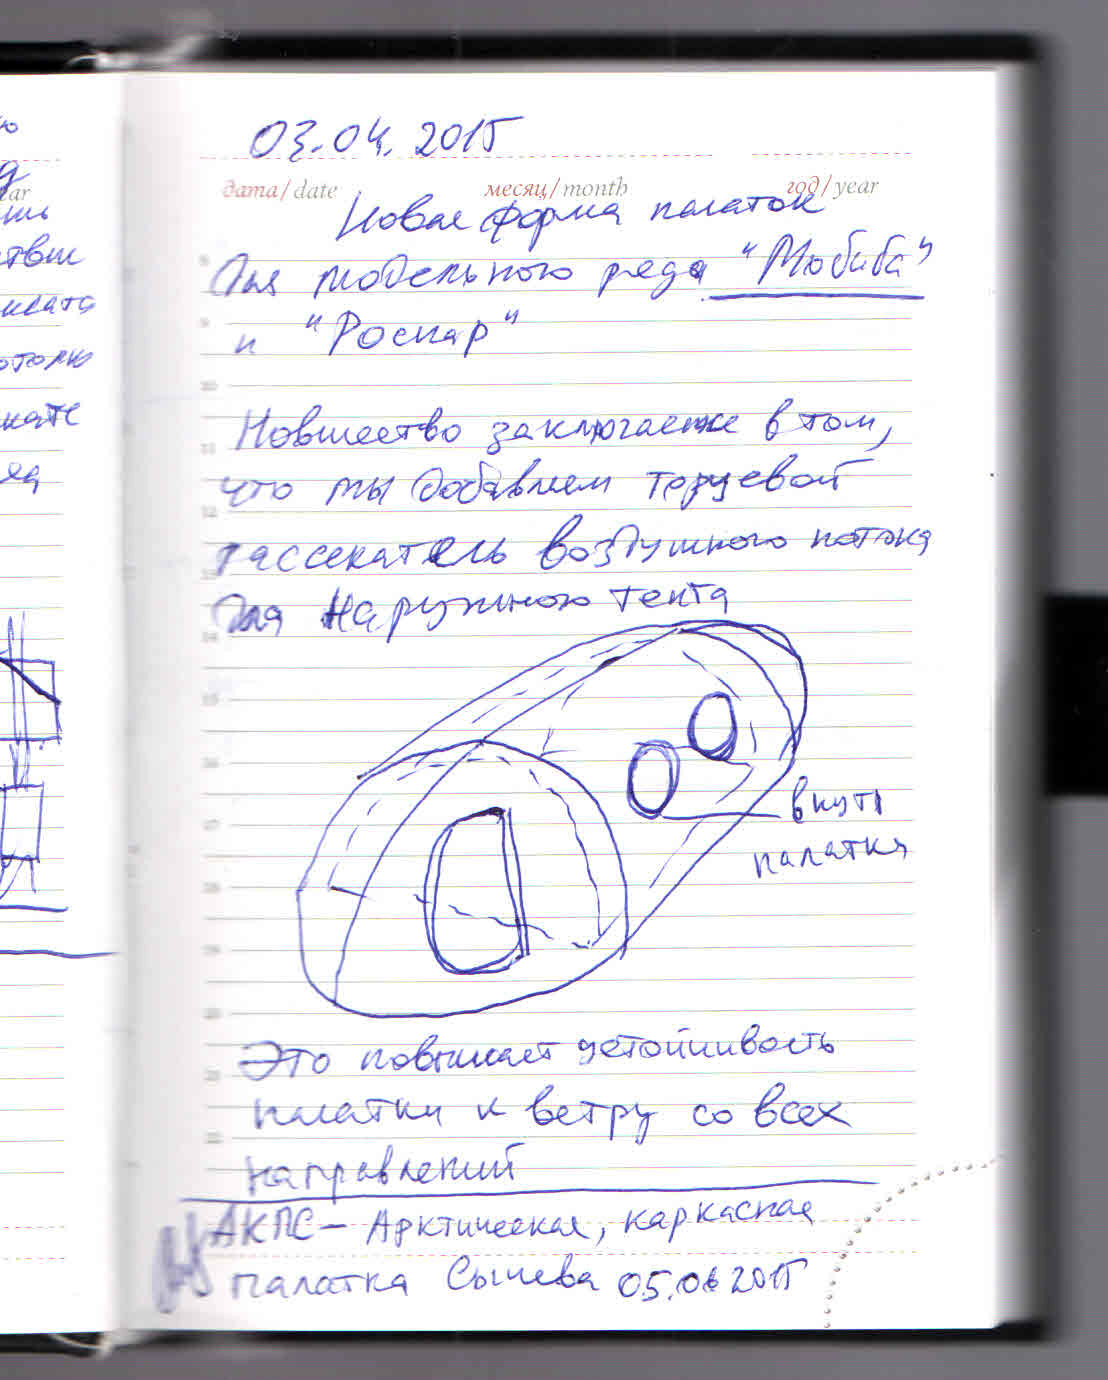 ью
ear
ствии
ската
скате
03.04.2015
дата/date месяц/month год/year
Новая форма палаток
Для модельного ряда "Мобиба"
и "Роснар"
Новшество заключается в том,
что мы добавляем торцевой
рассекатель воздушного потока
для наружного тента
внутр
палатка
Это повышает устойчивость
палатки к ветру со всех
направлений
АКПС – Арктическая, каркасная
палатка Сычева 05.06 2015